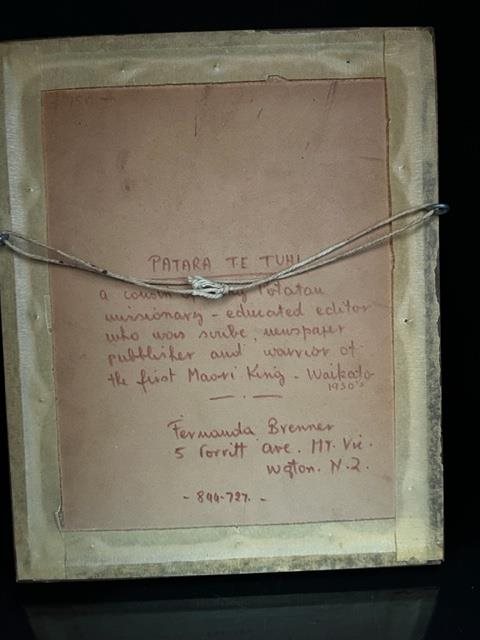 PATARA TE TUHI
a cousin King Potatau
missionary - educated editor
who was scribe, newspaper
pubblisher and warrior of
the first Maori King - Waikato
1930's
Fernanda Brenner
5 Porritt Ave. MT. Vic.
Wgton. N.Z.
- 844-727. -